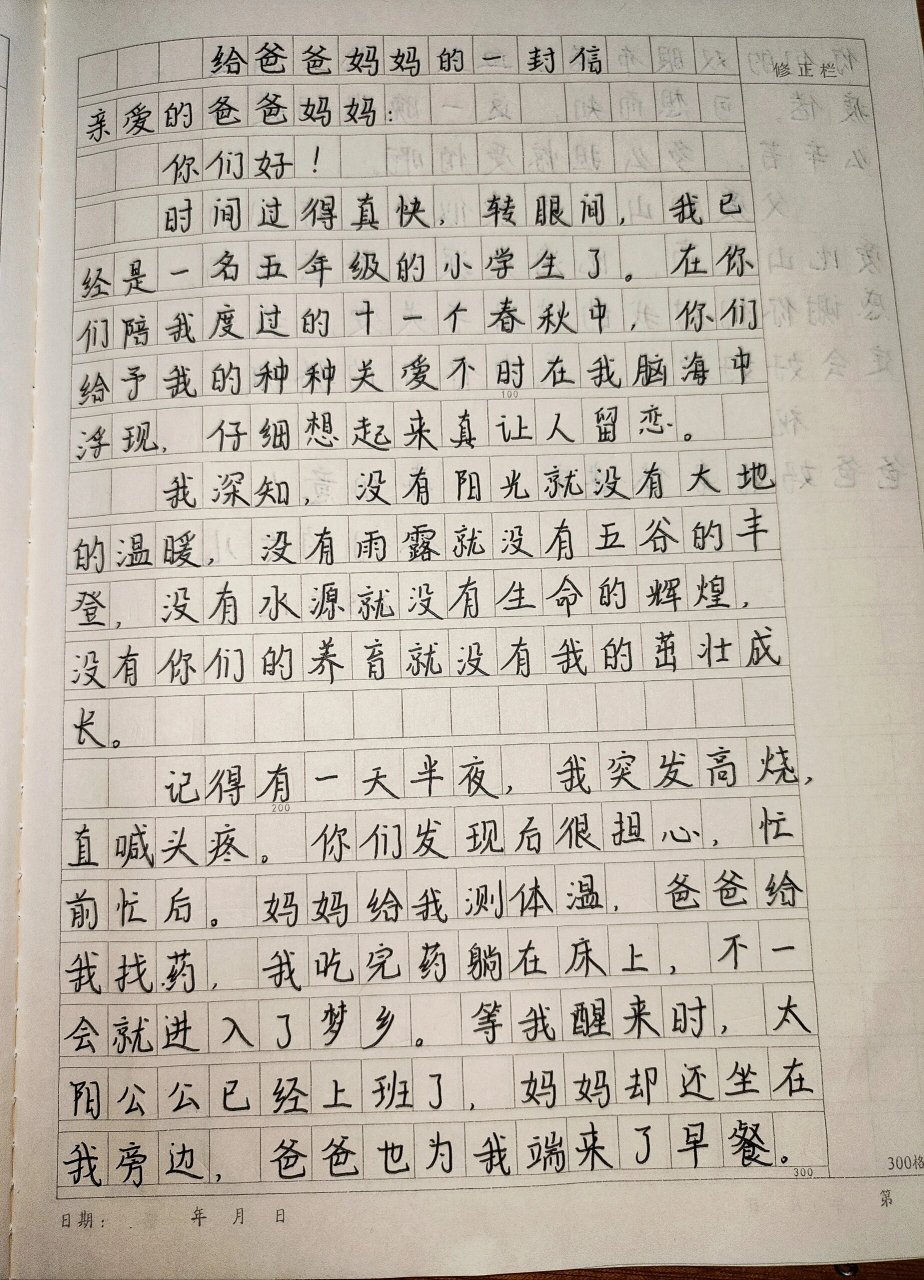 给爸爸妈妈的一封信
修正栏
亲爱的爸爸妈妈：
你们好！
时间过得真快，转眼间，我已
经是一名五年级的小学生了。在你
们陪我度过的十一个春秋中，你们
给予我的种种关爱不时在我脑海中
100
浮现，仔细想起来真让人留恋。
我深知，没有阳光就没有大地
的温暖，没有雨露就没有五谷的丰
登，没有水源就没有生命的辉煌，
没有你们的养育就没有我的茁壮成
长。
记得有一天半夜，我突发高烧，
200
直喊头疼。你们发现后很担心，忙
前忙后。妈妈给我测体温，爸爸给
我找药，我吃完药躺在床上，不一
会就进入了梦乡。等我醒来时，太
阳公公已经上班了，妈妈却还坐在
我旁边，爸爸也为我端来了早餐。
300
300格
日期： 年 月 日
第